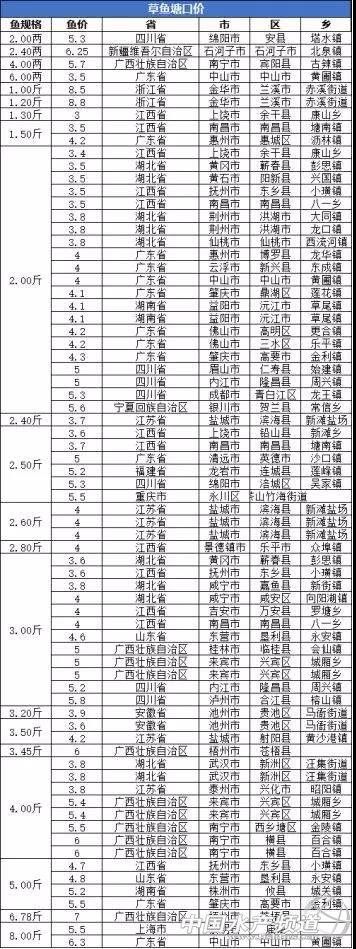 草鱼塘口价
鱼规格 鱼价 省 市 区县 乡
2.00两 5.3 四川省 绵阳市 安县 塔水镇
2.40两 6.25 新疆维吾尔自治区 石河子市 石河子市 北泉镇
4.00两 5.7 广西壮族自治区 南宁市 宾阳县 古辣镇
6.00两 3.5 广东省 中山市 中山市 黄圃镇
1.00斤 8.5 浙江省 金华市 兰溪市 赤溪街道
1.20斤 8.8 浙江省 金华市 兰溪市 赤溪街道
1.30斤 3 江西省 上饶市 余干县 康山乡
1.50斤 3.5 江西省 南昌市 南昌县 塘南镇
4.2 广东省 惠州市 惠城区 沥林镇
3.4 江西省 上饶市 余干县 康山乡
3.5 湖北省 黄冈市 蕲春县 彭思镇
3.5 湖北省 黄石市 阳新县 兴国镇
3.5 江西省 抚州市 东乡县 小璜镇
3.5 江西省 南昌市 南昌县 八一乡
3.8 湖北省 荆州市 洪湖市 大同镇
3.8 湖北省 荆州市 洪湖市 龙口镇
3.8 湖北省 仙桃市 仙桃市 西流河镇
4 广东省 惠州市 博罗县 龙华镇
4 广东省 云浮市 新兴县 东成镇
2.00斤 4 广东省 中山市 中山市 黄圃镇
4.1 广东省 肇庆市 鼎湖区 莲花镇
4.1 湖南省 益阳市 沅江市 草尾镇
4.1 湖南省 益阳市 沅江市 草尾镇
4.2 广东省 佛山市 高明区 更合镇
4.2 广东省 佛山市 三水区 乐平镇
4.3 广东省 肇庆市 高要市 金利镇
5 四川省 眉山市 仁寿县 始建镇
5 四川省 内江市 隆昌县 周兴镇
5.3 四川省 成都市 青白江区 龙王镇
5.6 宁夏回族自治区 银川市 贺兰县 常信乡
2.40斤 3.7 江苏省 盐城市 滨海县 新滩盐场
2.50斤 3.6 江西省 上饶市 铅山县 新滩乡
3.7 江西省 南昌市 南昌县 塘南镇
5 广东省 清远市 英德市 沙口镇
5.2 福建省 龙岩市 连城县 莲峰镇
5.3 四川省 绵阳市 涪城区 吴家镇
5.5 重庆市 永川区 茶山竹海街道
2.60斤 4 江苏省 盐城市 滨海县 新滩盐场
4 江苏省 盐城市 滨海县 新滩盐场
4 江苏省 盐城市 滨海县 新滩盐场
2.80斤 4 江西省 景德镇市 乐平市 众埠镇
3.6 湖北省 黄冈市 蕲春县 彭思镇
3.6 江西省 抚州市 东乡县 小璜镇
3.8 湖北省 咸宁市 嘉鱼县 新街镇
4 湖北省 咸宁市 咸安区 向阳湖镇
4 江西省 吉安市 万安县 罗塘乡
4 江西省 南昌市 南昌县 八一乡
3.00斤 4.6 山东省 东营市 垦利县 永安镇
5 广西壮族自治区 桂林市 临桂县 会仙镇
5 广西壮族自治区 来宾市 兴宾区 城厢乡
5 广西壮族自治区 来宾市 兴宾区 城厢乡
5.2 四川省 内江市 隆昌县 周兴镇
5.8 四川省 泸州市 合江县 榕山镇
3.20斤 3.9 安徽省 池州市 贵池区 马衙街道
3.50斤 3.6 安徽省 池州市 贵池区 马衙街道
4.2 江苏省 盐城市 射阳县 黄沙港镇
3.45斤 6 广西壮族自治区 梧州市 苍梧县
3.8 湖北省 武汉市 新洲区 汪集街道
3.8 湖北省 武汉市 新洲区 汪集街道
3.8 江苏省 泰州市 兴化市 昭阳镇
4.00斤 5.4 广西壮族自治区 来宾市 兴宾区 城厢乡
5.4 广西壮族自治区 来宾市 兴宾区 城厢乡
5.5 广西壮族自治区 南宁市 西乡塘区 金陵镇
6 广西壮族自治区 南宁市 横县 百合镇
6 广西壮族自治区 南宁市 横县 百合镇
4.7 江西省 抚州市 东乡县 小璜镇
5.00斤 4.8 山东省 东营市 垦利县 永安镇
5.2 湖南省 株洲市 攸县 城关镇
5.5 广东省 肇庆市 高要市 金利镇
6.78斤 7 广西壮族自治区 梧州市 苍梧县
8.00斤 5.5 上海市
6.3 广东省 中山市 中山市 黄圃镇
中国水产频道